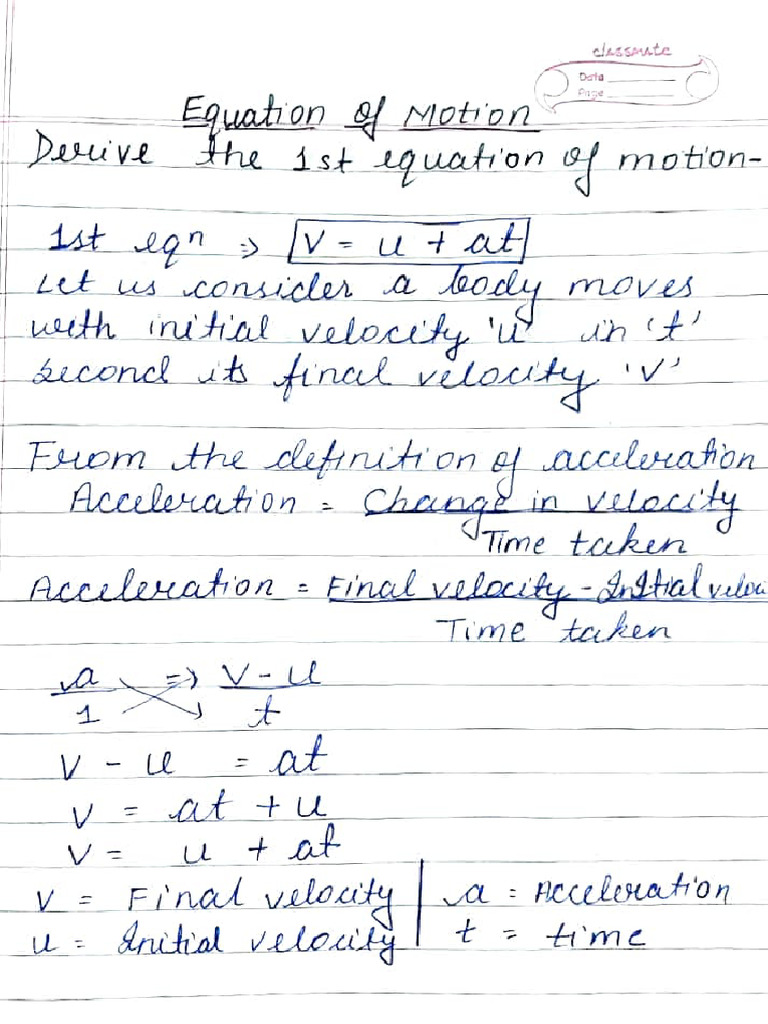 classmate
Date
Page
Equation of Motion
Derive the 1st equation of motion-
1st eqn => V = u + at
Let us consider a body moves
with initial velocity 'u' in 't'
second its final velocity 'v'
From the definition of acceleration
Acceleration = Change in velocity
Time taken
Acceleration = Final velocity - Initial veloci
Time taken
a => V - u
1 t
V - u = at
V = at + u
V = u + at
V = Final velocity | a = Acceleration
u = Initial velocity | t = time